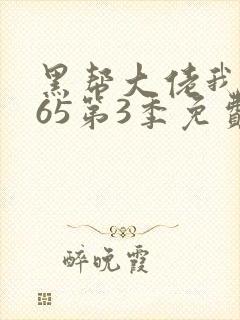 黑帮大佬我
65第3季免费
醉晚霞